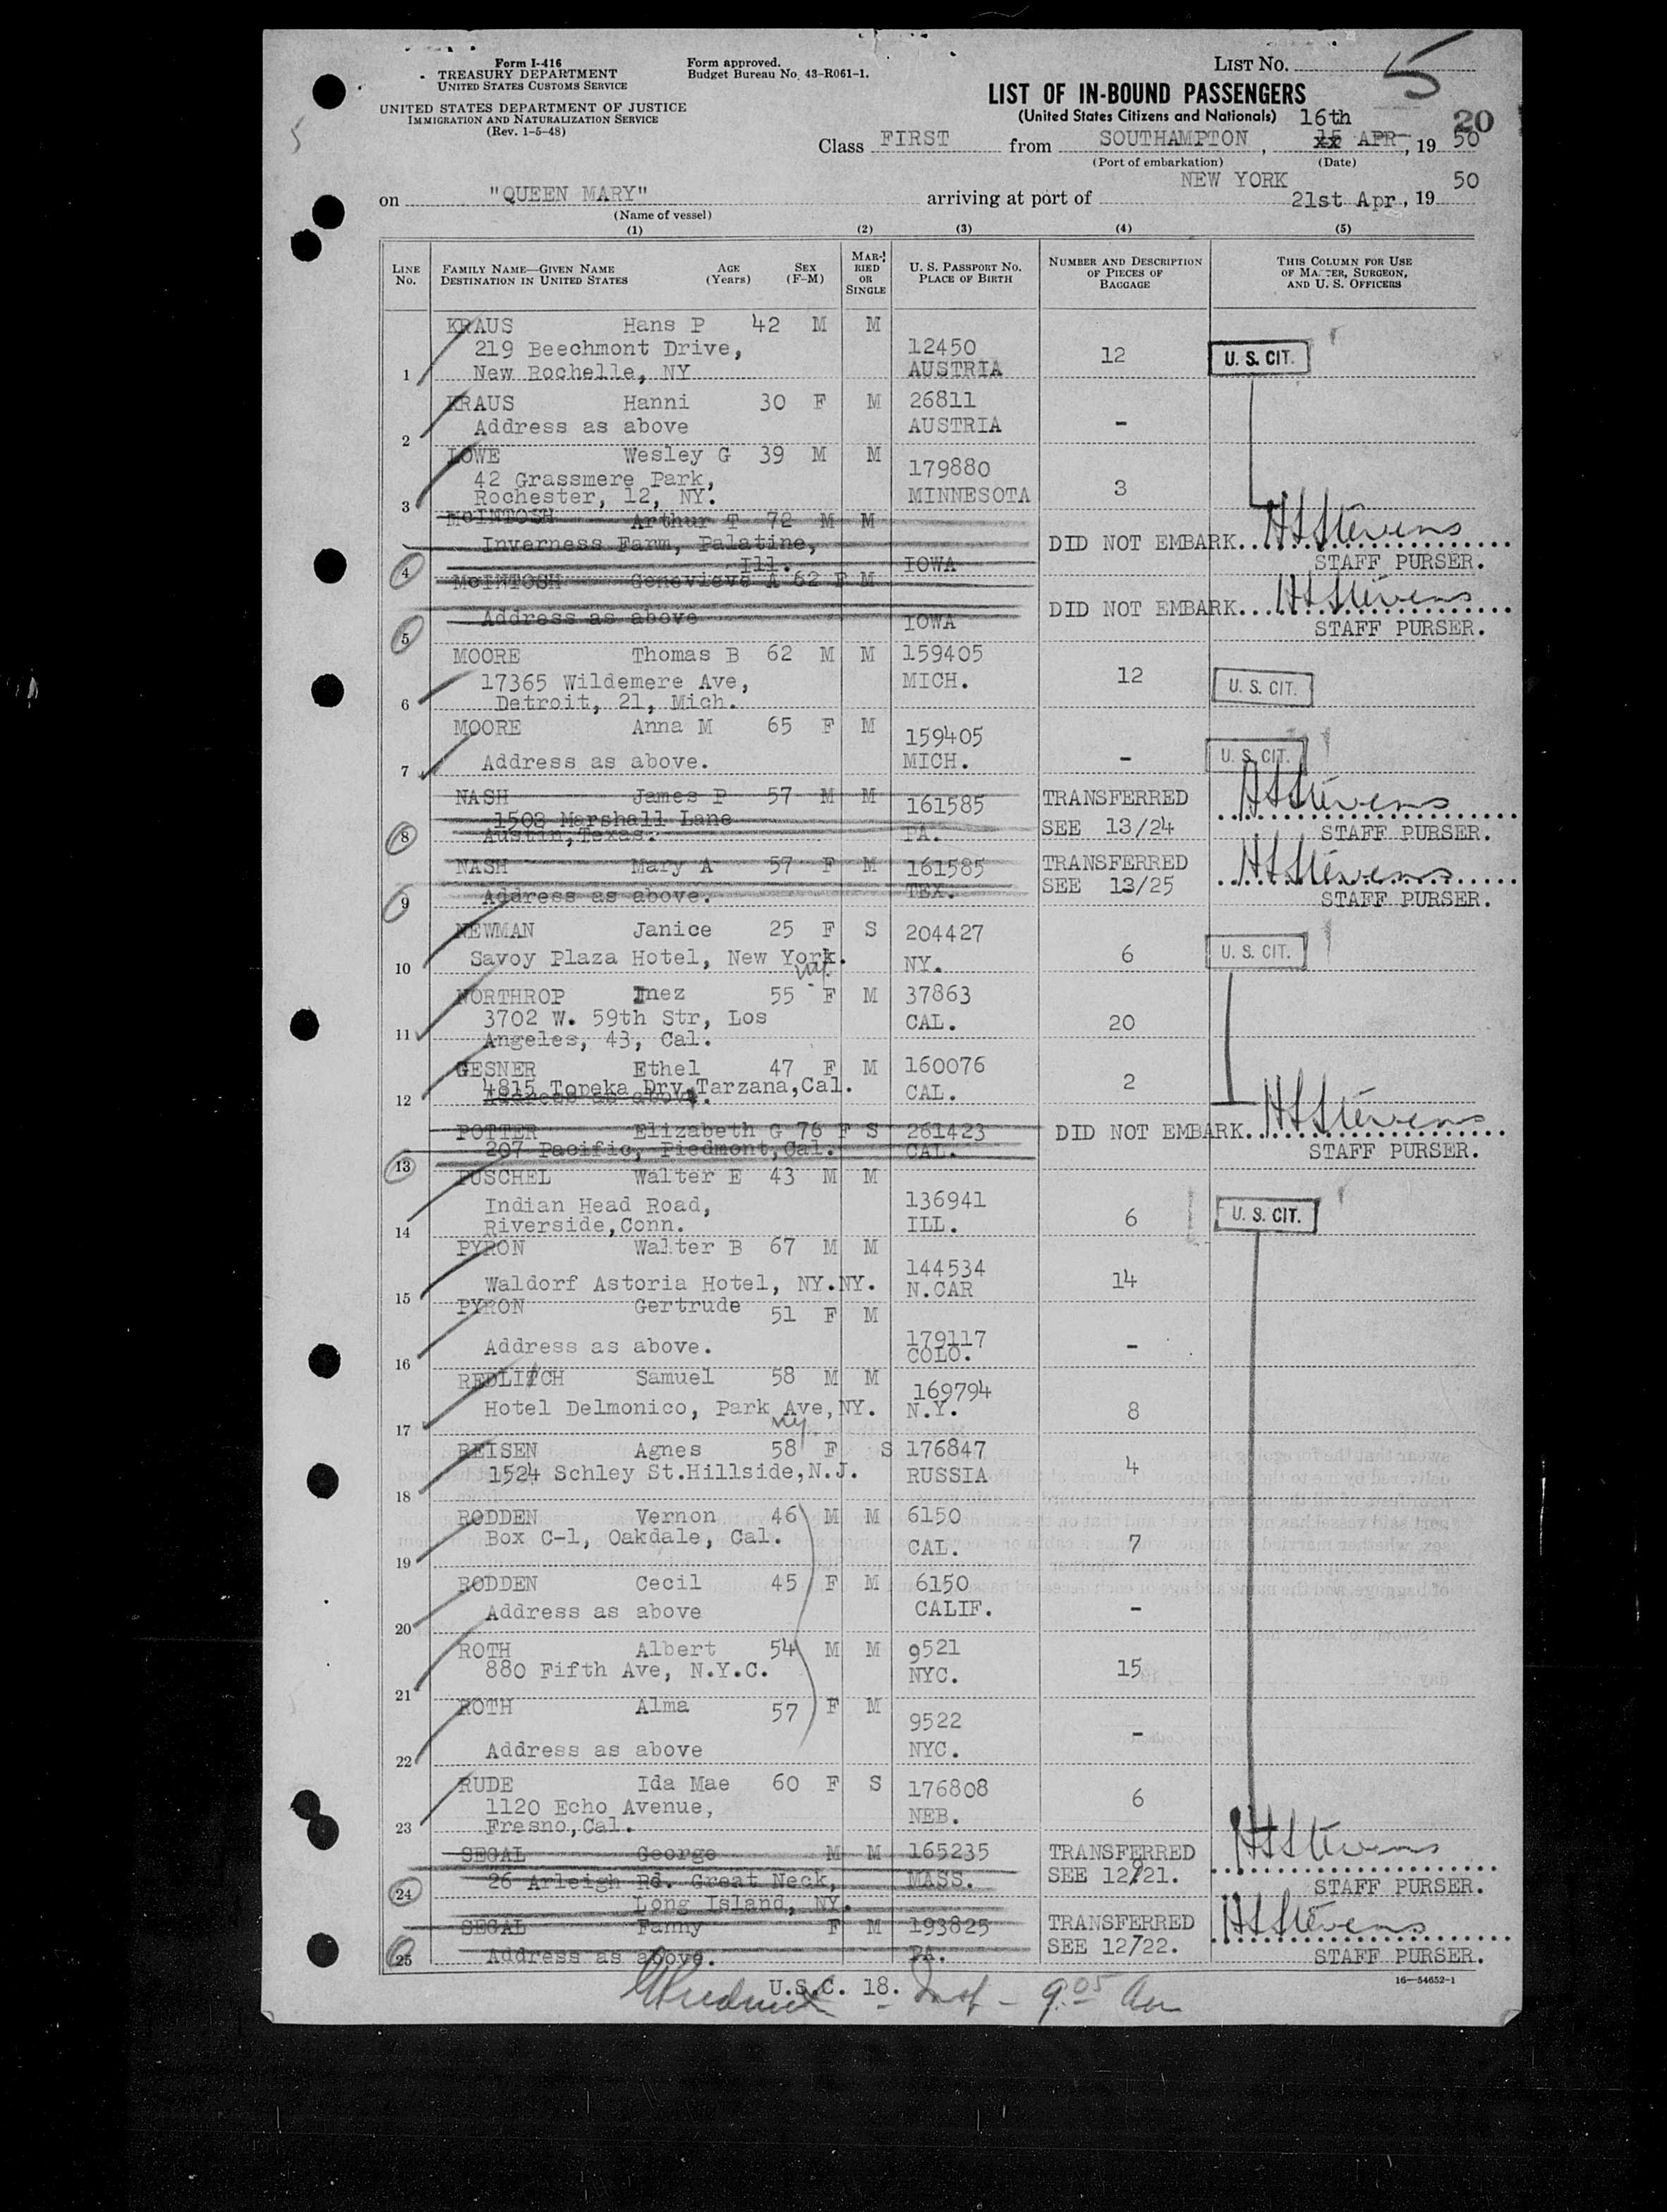 Form I-416
TREASURY DEPARTMENT
UNITED STATES CUSTOMS SERVICE
UNITED STATES DEPARTMENT OF JUSTICE
IMMIGRATION AND NATURALIZATION SERVICE
(Rev. 1-5-48)
Form approved.
Budget Bureau No. 43-R061-1.
LIST NO. 5
LIST OF IN-BOUND PASSENGERS
(United States Citizens and Nationals)
20
16th
Class FIRST from SOUTHAMPTON, xx 15 APR, 19 50
(Port of embarkation) (Date)
on "QUEEN MARY" arriving at port of NEW YORK 21st Apr, 19 50
(Name of vessel)
(1) (2) (3) (4) (5)
LINE NO. FAMILY NAME—GIVEN NAME DESTINATION IN UNITED STATES AGE (Years) SEX (F-M) MARRIED OR SINGLE U. S. PASSPORT NO. PLACE OF BIRTH NUMBER AND DESCRIPTION OF PIECES OF BAGGAGE THIS COLUMN FOR USE OF MASTER, SURGEON, AND U. S. OFFICERS
KRAUS Hans P 42 M M
219 Beechmont Drive, 12450 12 U. S. CIT.
1 New Rochelle, NY AUSTRIA
KRAUS Hanni 30 F M 26811
2 Address as above AUSTRIA -
LOWE Wesley G 39 M M 179880
42 Grassmere Park, 3
3 Rochester, 12, NY. MINNESOTA
McINTOSH Arthur T 72 M M
Inverness Farm, Palatine, DID NOT EMBARK. HSStevens
4 Ill. IOWA STAFF PURSER.
McINTOSH Genevieve A 62 F M
Address as above DID NOT EMBARK. HSStevens
5 IOWA STAFF PURSER.
MOORE Thomas B 62 M M 159405
17365 Wildemere Ave, MICH. 12 U. S. CIT.
6 Detroit, 21, Mich.
MOORE Anna M 65 F M 159405
7 Address as above. MICH. - U. S. CIT.
NASH James P 57 M M 161585 TRANSFERRED HSStevens
1503 Marshall Lane
8 Austin, Texas. PA. SEE 13/24 STAFF PURSER.
NASH Mary A 57 F M 161585 TRANSFERRED HSStevens
9 Address as above. TEX. SEE 13/25 STAFF PURSER.
NEWMAN Janice 25 F S 204427
10 Savoy Plaza Hotel, New York. NY. 6 U. S. CIT.
NORTHROP Inez 55 F M 37863
3702 W. 59th Str, Los CAL. 20
11 Angeles, 43, Cal.
GESNER Ethel 47 F M 160076
4815 Topeka Drv, Tarzana, Cal. 2
12 Address as above. CAL.
POTTER Elizabeth G 76 F S 261423 DID NOT EMBARK. HSStevens
13 207 Pacific, Piedmont, Cal. CAL. STAFF PURSER.
PUSCHEL Walter E 43 M M
Indian Head Road, 136941 6 U. S. CIT.
14 Riverside, Conn. ILL.
PYRON Walter B 67 M M 144534
15 Waldorf Astoria Hotel, NY.NY. N.CAR 14
PYRON Gertrude 51 F M
16 Address as above. 179117 COLO. -
REDLITCH Samuel 58 M M 169794
17 Hotel Delmonico, Park Ave, NY. N.Y. 8
NY
REISEN Agnes 58 F S 176847
18 1524 Schley St.Hillside, N.J. RUSSIA 4
RODDEN Vernon 46 M M 6150
19 Box C-1, Oakdale, Cal. CAL. 7
RODDEN Cecil 45 F M 6150
20 Address as above CALIF. -
ROTH Albert 54 M M 9521
21 880 Fifth Ave, N.Y.C. NYC. 15
ROTH Alma 57 F M 9522
22 Address as above NYC. -
RUDE Ida Mae 60 F S 176808
1120 Echo Avenue, 6
23 Fresno, Cal. NEB.
SEGAL George M M 165235 TRANSFERRED HSStevens
24 26 Arleigh Rd. Great Neck, MASS. SEE 12/21. STAFF PURSER.
Long Island, NY.
SEGAL Fanny F M 193825 TRANSFERRED HSStevens
25 Address as above. PA. SEE 12/22. STAFF PURSER.
U.S.C. 18. - Insp - 9:05 Am
16—54652-1